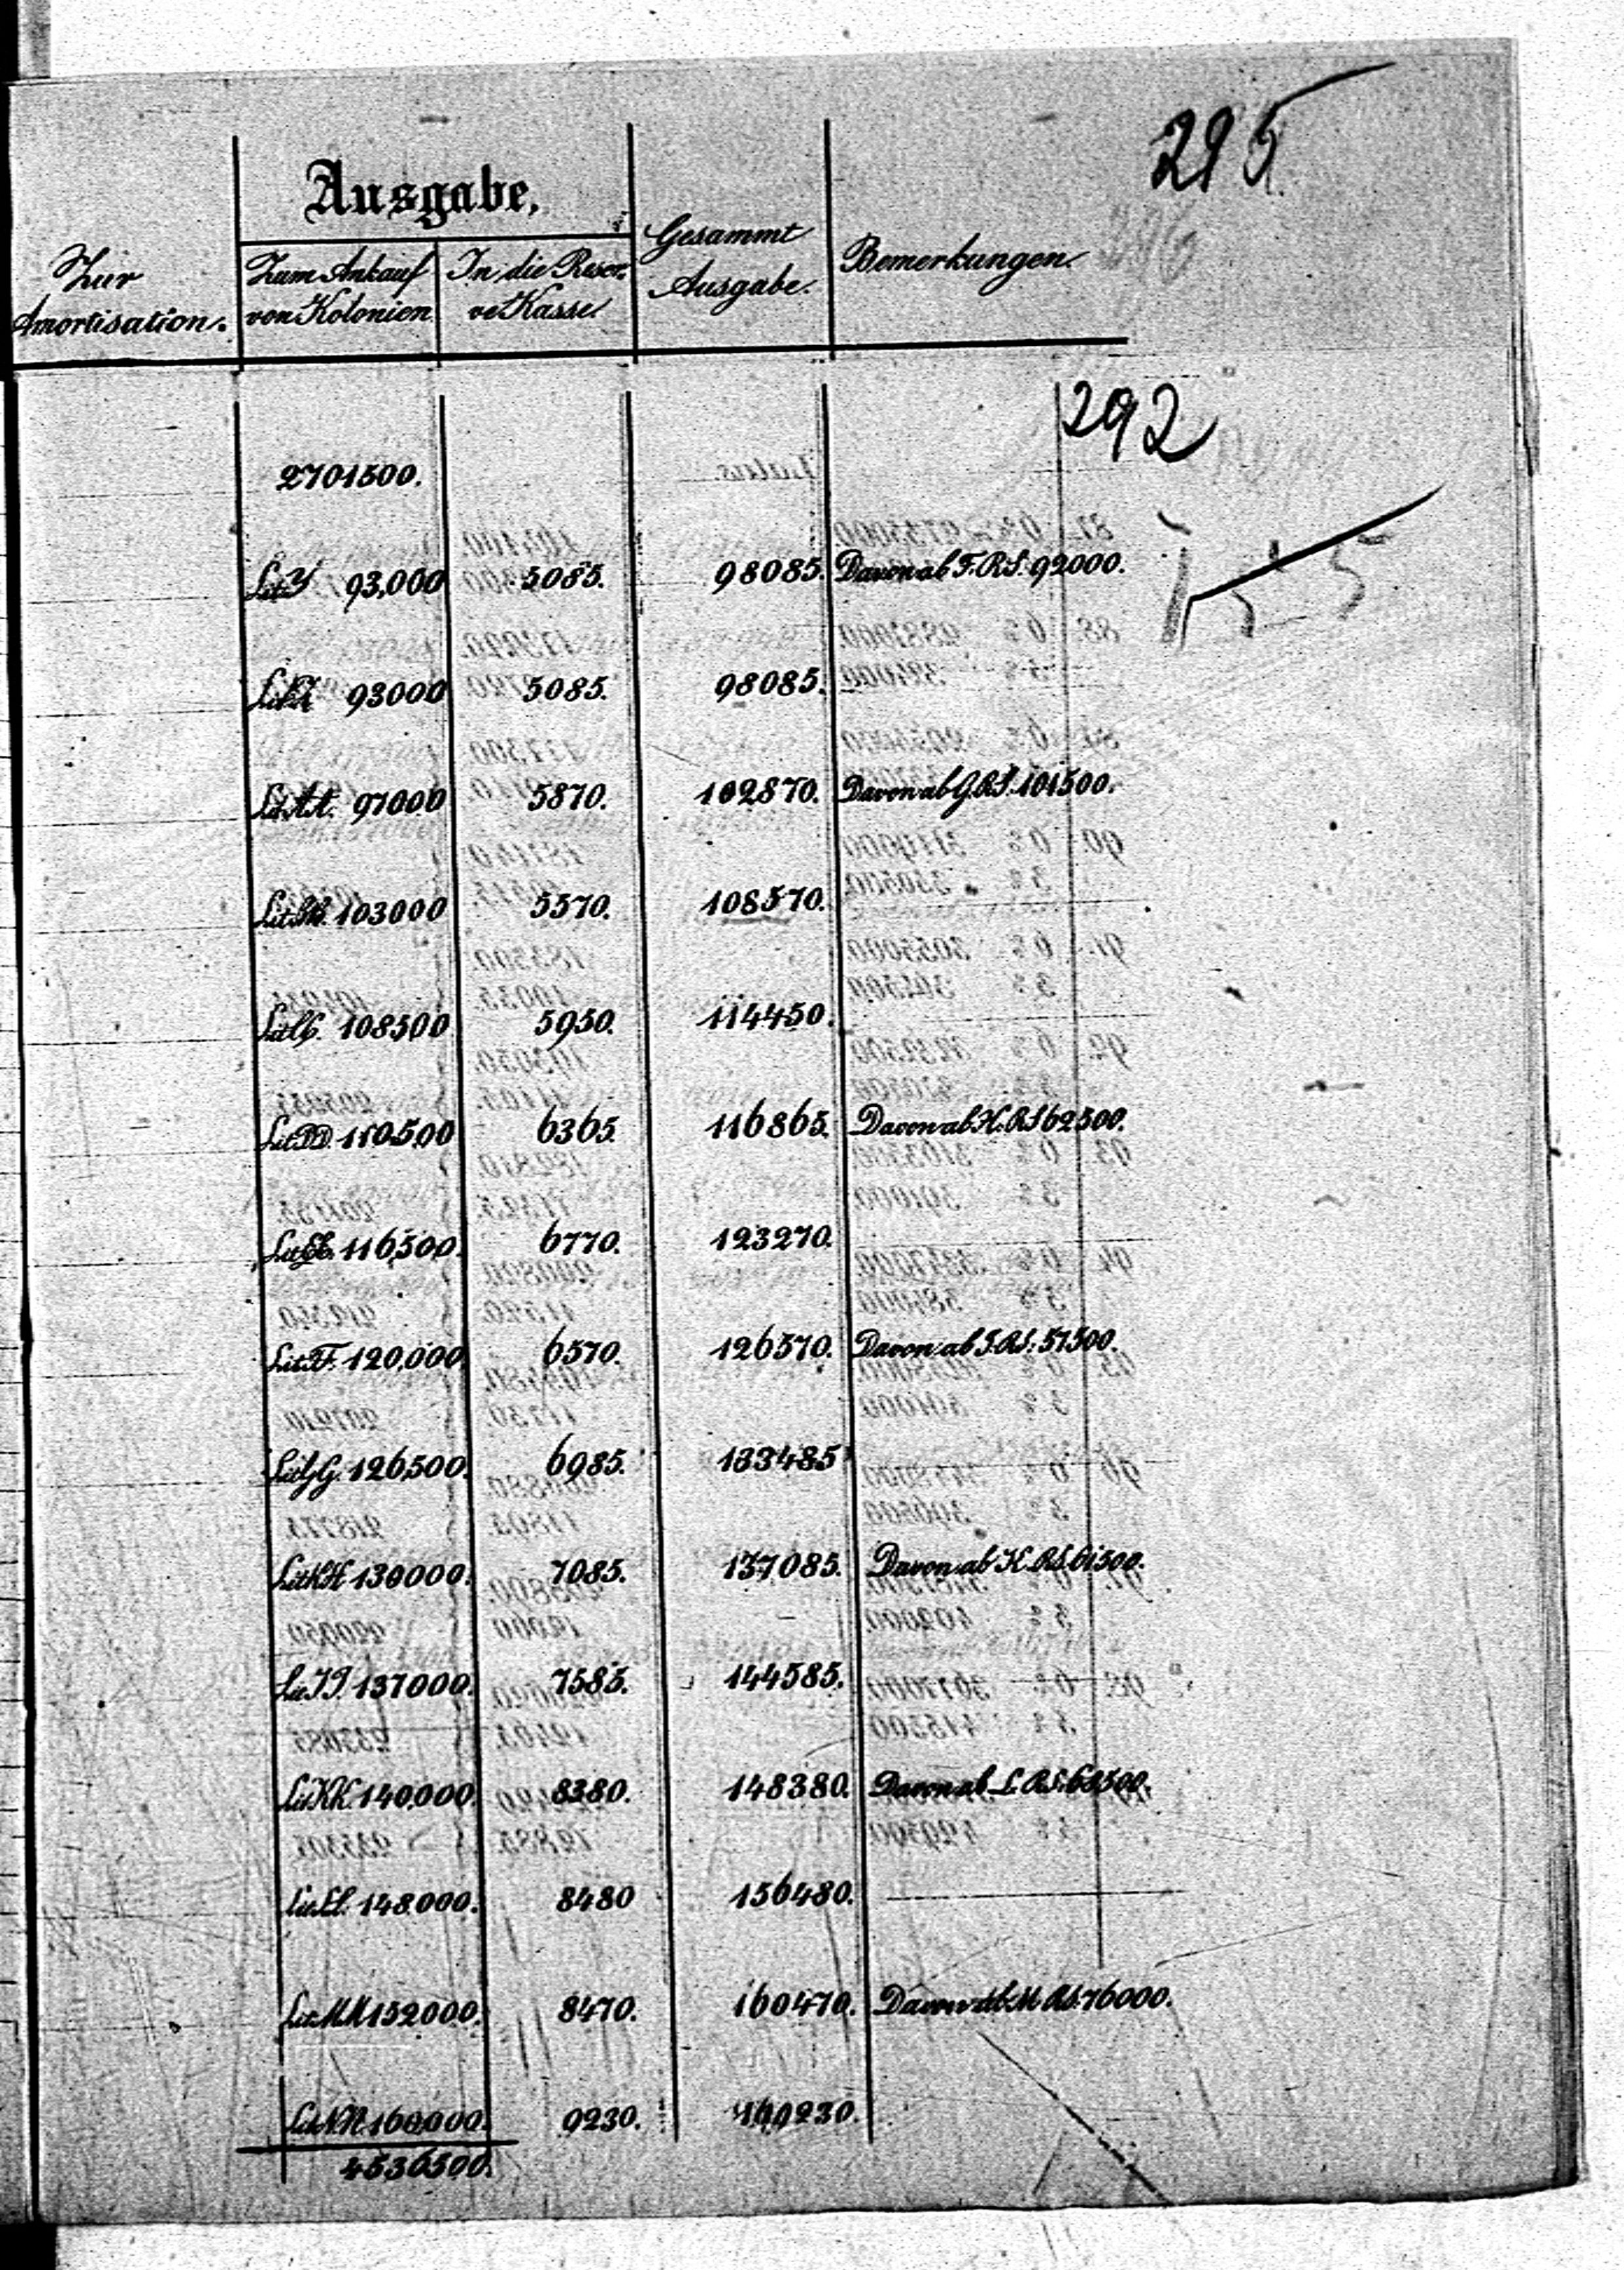 295
Ausgabe,
Zur Amortisation.
Zum Ankauf von Kolonien
In die Reser- ve Kasse
Gesammt Ausgabe.
Bemerkungen.
292
2701500.
Lit. Y 93,000 5085. 98085. Davon ab F. RS. 92000.
Lit. Z 93000 5085. 98085.
Lit. AA. 97000 5870. 102870. Davon ab G. RS. 101500.
Lit. BB. 103000 5570. 108570.
Lit. CC. 108500 5950. 114450.
Lit. DD. 110500 6365. 116865. Davon ab H. RS 62500.
Lit. EE. 116500. 6770. 123270.
Lit. FF. 120,000. 6570. 126570. Davon ab I. RS. 57500.
Lit. GG. 126,500. 6985. 133485
Lit. HH. 130000. 7085. 137085. Davon ab K. RS. 61500.
Lit. II. 137000. 7585. 144585.
Lit. KK. 140,000. 8380. 148380. Davon ab L. RS. 68500.
Lit. LL. 148.000. 8480 156480.
Lit. MM 152000. 8470. 160470. Davon ab M. RS. 76000.
Lit. NN. 160,000. 9230. 169230.
4536500.